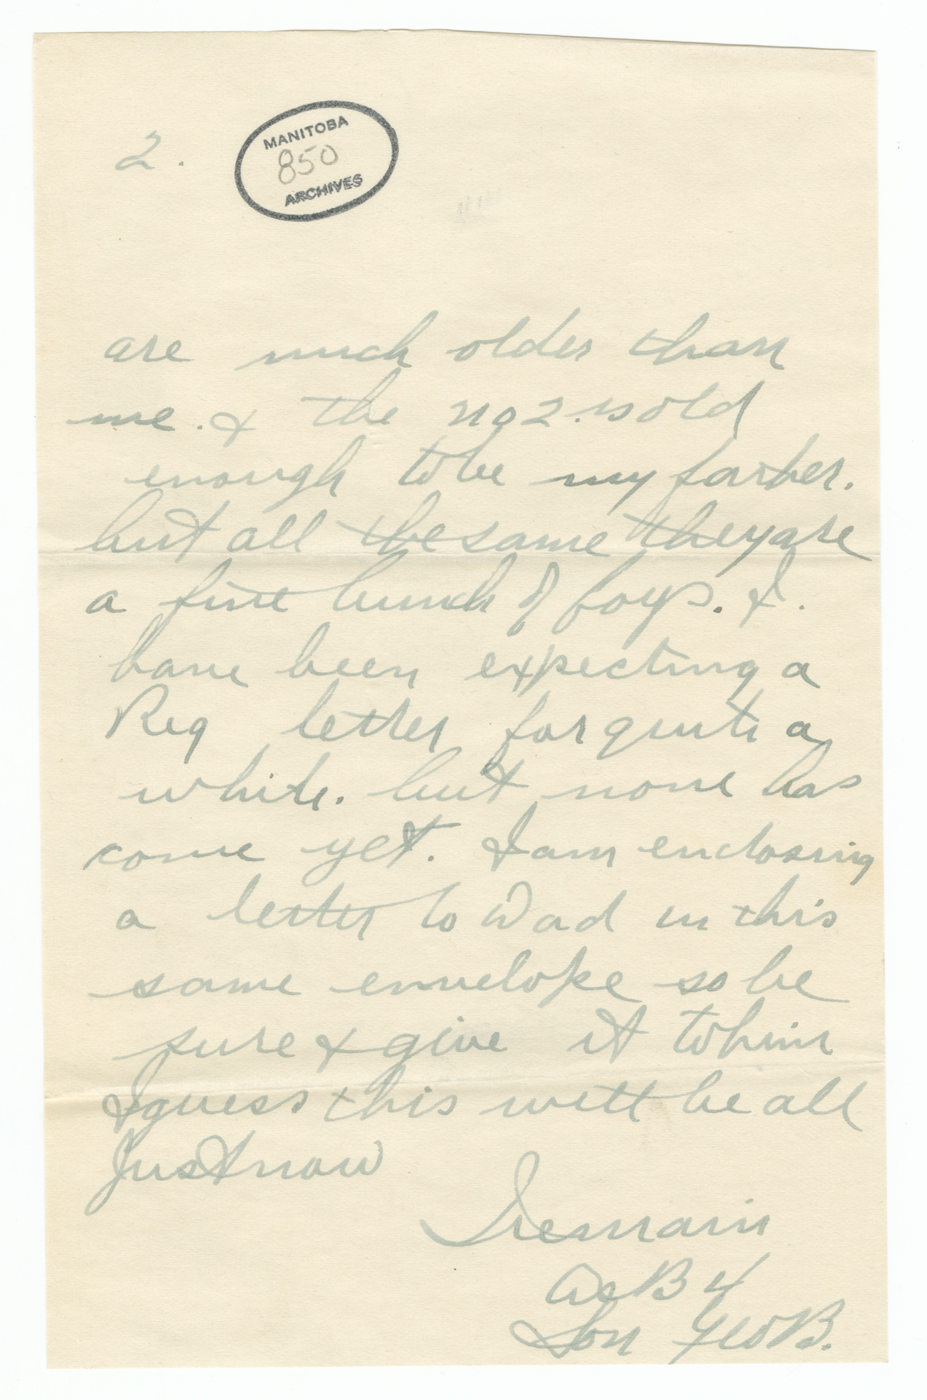 2.
MANITOBA
850
ARCHIVES
are much older than
me. & the no 2. is old
enough to be my farther.
but all the same they are
a fine bunch of boys. I.
have been expecting a
Reg letter for quite a
while. but none has
come yet. I am enclosing
a letter to Dad in this
same envelope so be
sure & give it to him
I guess this will be all
Just now
I remain
As B 4
Son Geo B.